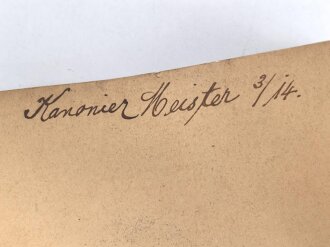 Kanonier Meister 3/14.